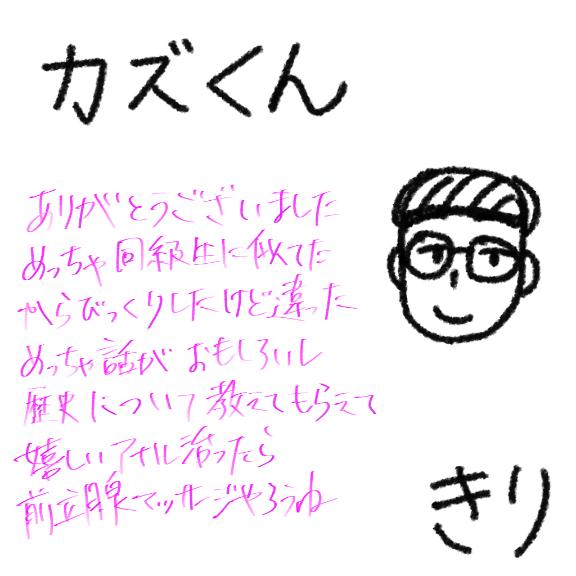 カズくん
ありがとうございました
めっちゃ同級生に似てた
からびっくりしたけど違った
めっちゃ話がおもしろいし
歴史について教えてもらえて
嬉しいアナル治ったら
前立腺マッサージやろうね
きり